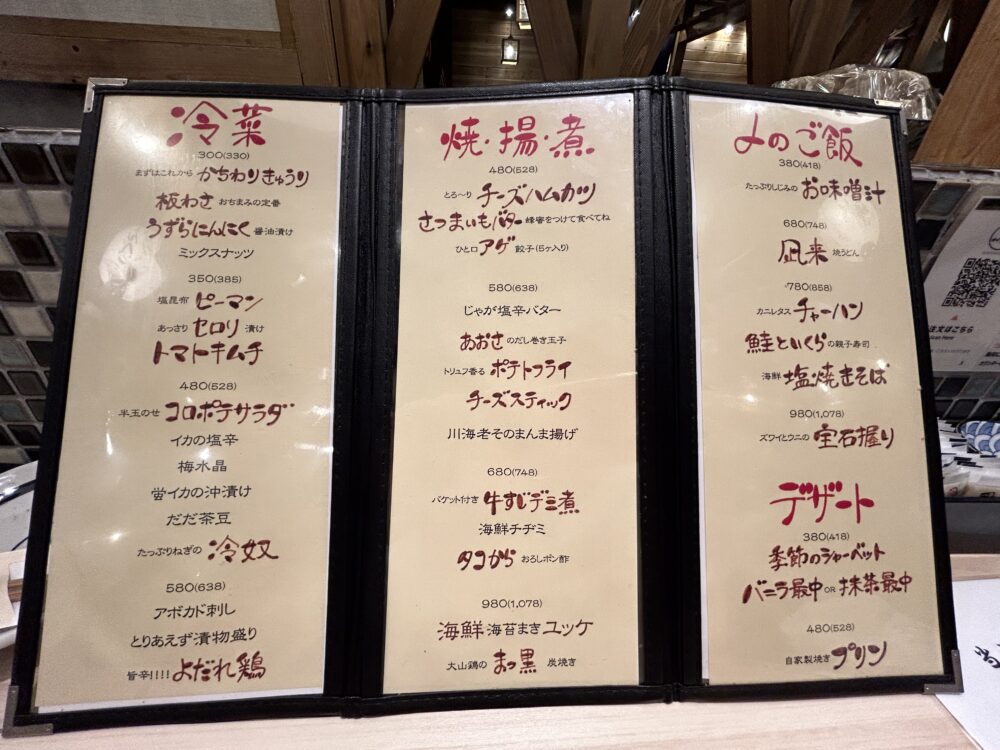 冷菜
300(330)
まずはこれから かちわりきゅうり
板わさ おちまみの定番
うずらにんにく 醤油漬け
ミックスナッツ
350(385)
塩昆布 ピーマン
あっさり セロリ 漬け
トマトキムチ
480(528)
半玉のせ コロポテサラダ
イカの塩辛
梅水晶
蛍イカの沖漬け
だだ茶豆
たっぷりねぎの 冷奴
580(638)
アボカド刺し
とりあえず漬物盛り
旨辛!!!! よだれ鶏
焼・揚・煮
480(528)
とろ〜り チーズハムカツ
さつまいもバター 蜂蜜をつけて食べてね
ひと口 アゲ 餃子(5ヶ入り)
580(638)
じゃが塩辛バター
あおさ のだし巻き玉子
トリュフ香る ポテトフライ
チーズスティック
川海老そのまんま揚げ
680(748)
バケット付き 牛すじデミ煮
海鮮チヂミ
タコから おろしポン酢
980(1,078)
海鮮 海苔まき ユッケ
大山鶏の まっ黒 炭焼き
〆のご飯
380(418)
たっぷりしじみの お味噌汁
680(748)
凪来 焼うどん
780(858)
カニレタス チャーハン
鮭といくら の親子寿司
海鮮 塩焼きそば
980(1,078)
ズワイとウニの 宝石握り
デザート
380(418)
季節のシャーベット
バニラ最中 OR 抹茶最中
480(528)
自家製焼き プリン
注文はこちら